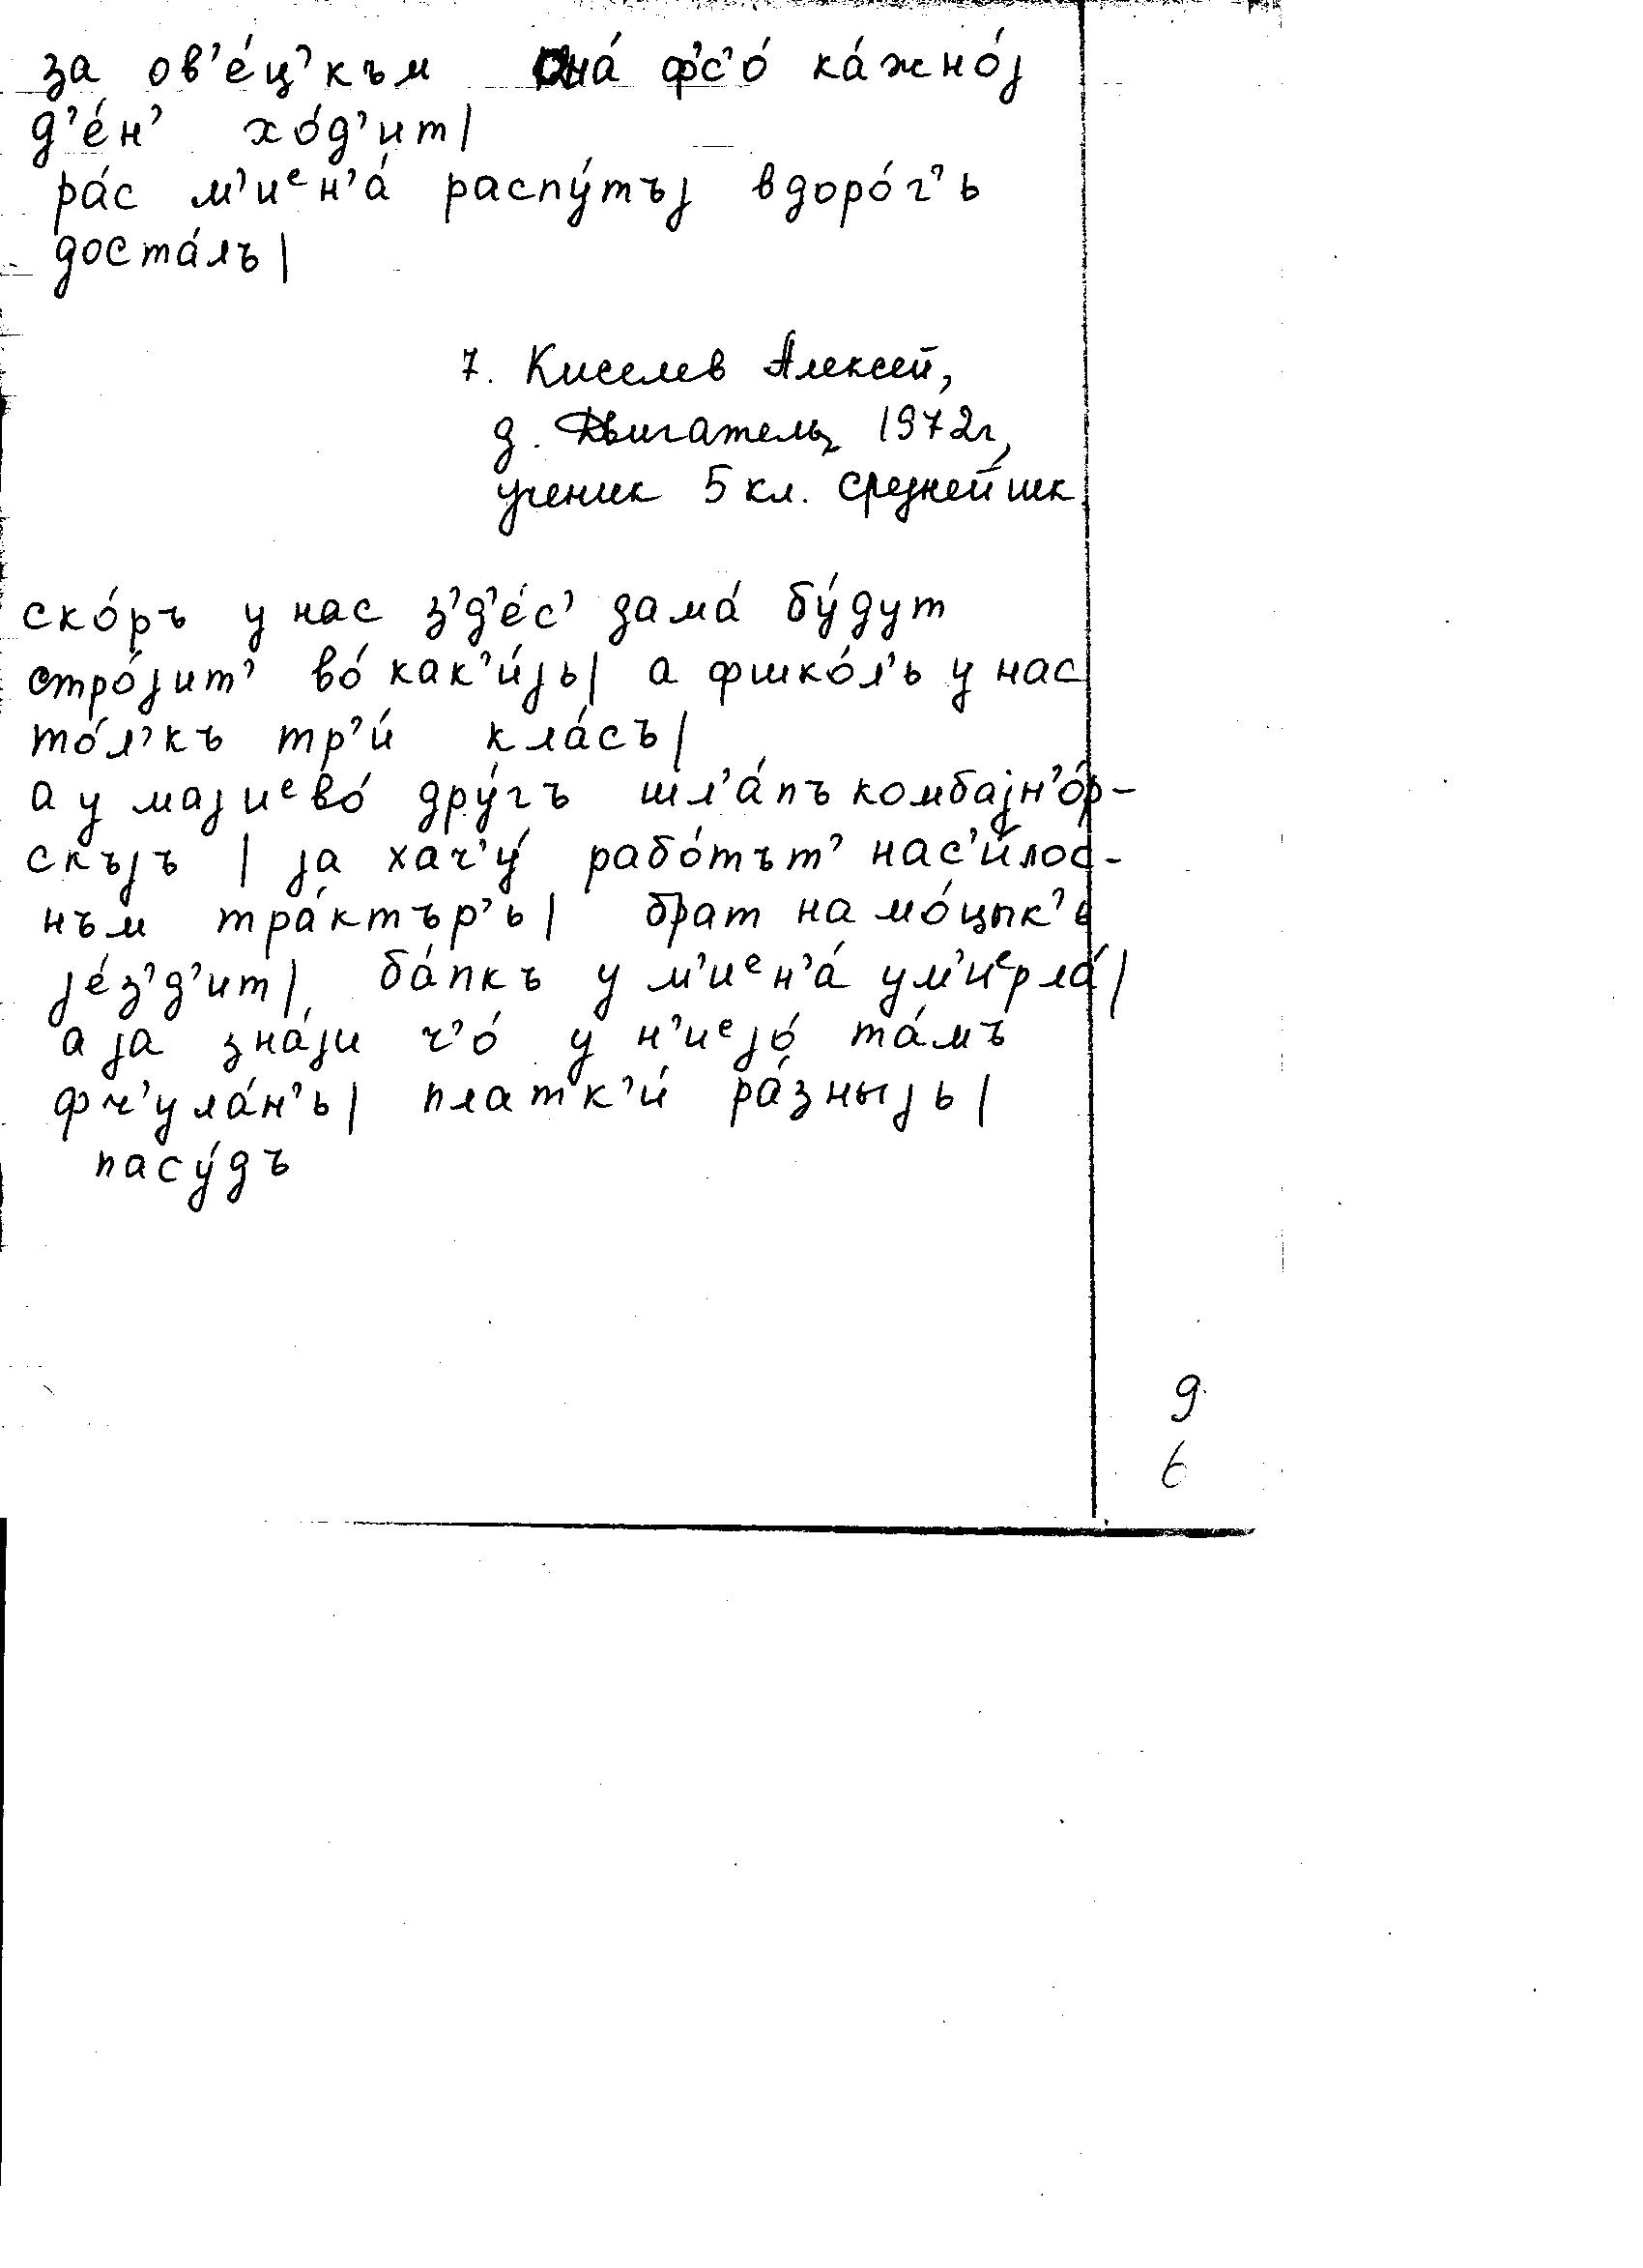 за ов’е́ц’към она́ ф’с’о́ ка́жно́ј
д’е́н’ хо́д’ит|
ра́с м’иᵉн’а́ распу́тъј вдоро́г’ь
доста́лъ|
7. Киселев Алексей,
д. Двигатель, 1972г,
ученик 5 кл. средней шк.
ско́ръ у нас з’д’е́с’ дама́ бу́дут
стро́јит’ во́ как’и́јь| а фшко́л’ь у нас
то́л’къ тр’и́ кла́съ|
а у мајиᵉво́ дру́гъ шл’а́пъ комбајн’о́р-
скъјъ | ја хач’у́ рабо́тът’ нас’и́лос-
нъм тра́ктър’ь| брат на мо́цык’ь
јéз’д’ит| ба́пкъ у м’иᵉн’а́ ум’иᵉрла́|
а ја зна́ји ч’о́ у н’иᵉјо́ та́мъ
фч’ула́н’ь| платк’и́ ра́зныјь|
пасу́дъ
9
6